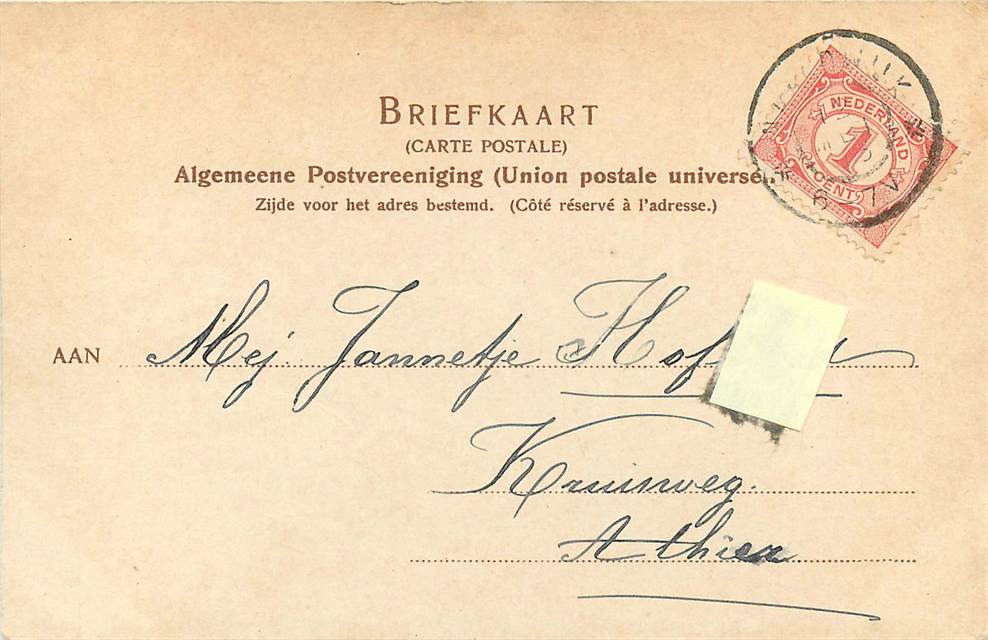 BRIEFKAART
(CARTE POSTALE)
Algemeene Postvereeniging (Union postale universe
Zijde voor het adres bestemd. (Côté réservé à l'adresse.)
NEDERLAND
1
CENT
AAN Mej. Jannetje Hof
Kruinweg.
Alhier